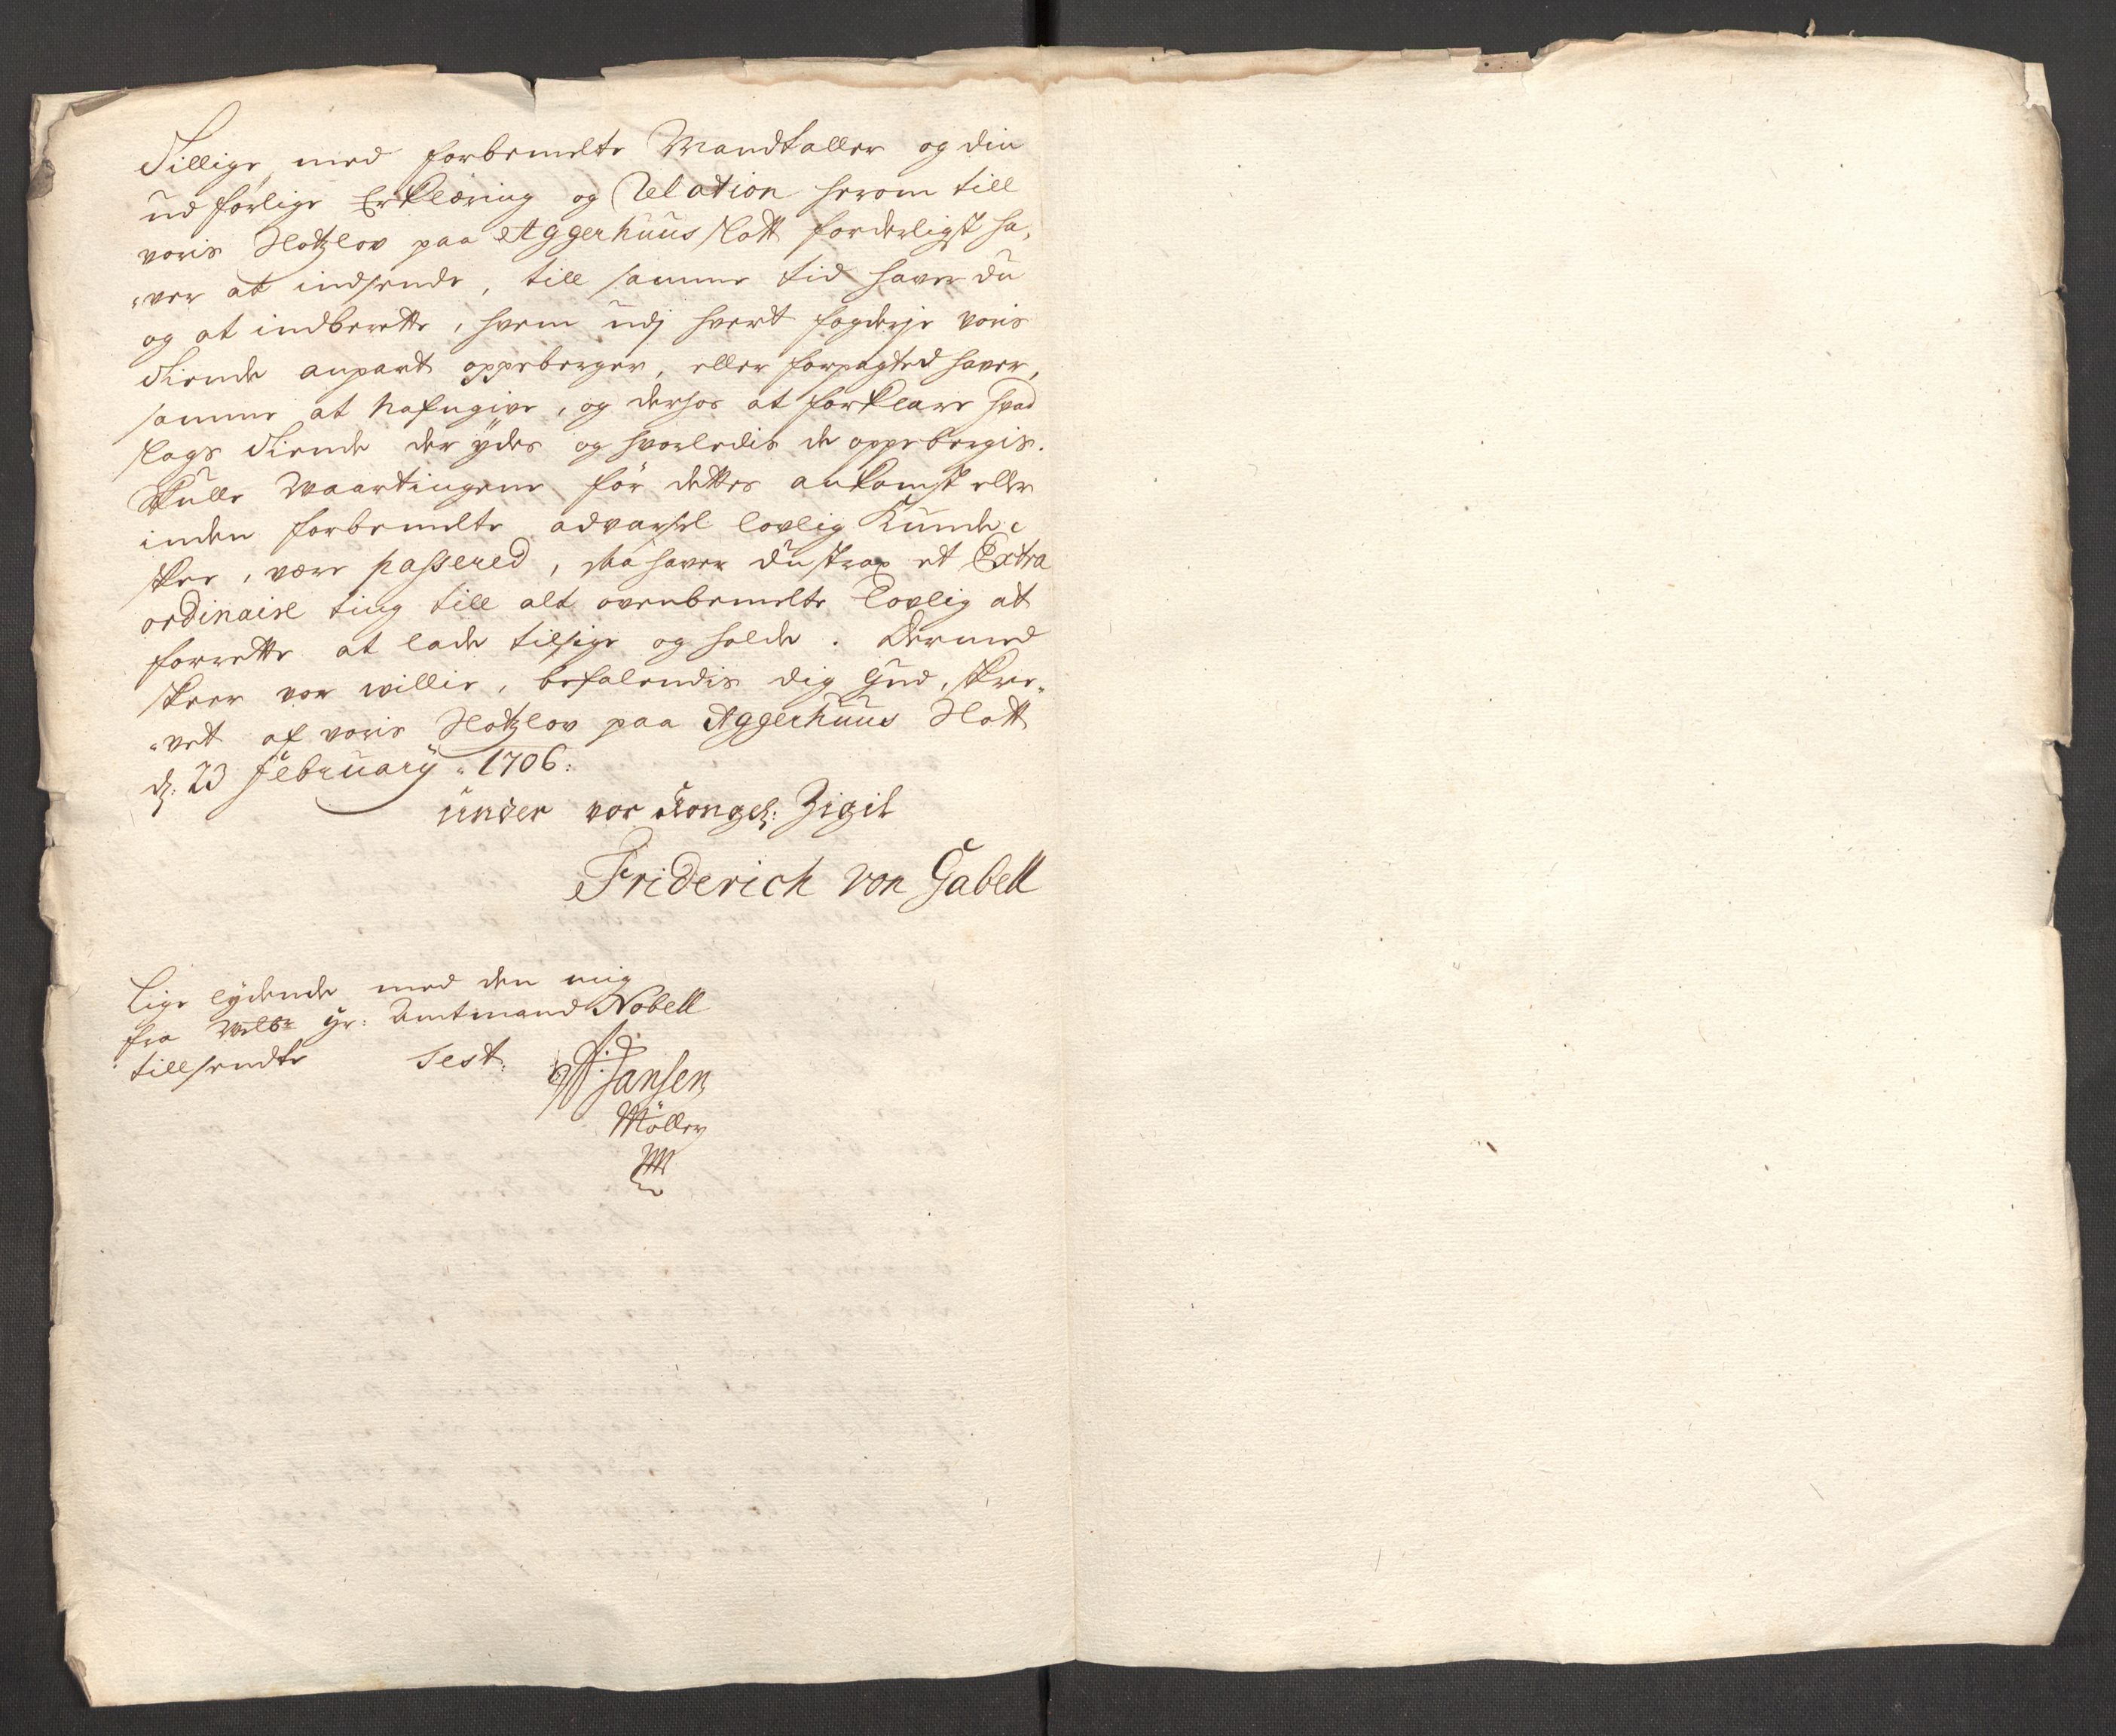 Tillige med forbemelte Mandtaller og din
udførlige Erklæring og Relation herom till
voris Slotzlov paa Aggerhuus slott forderligst ha,
"ver at indsende, till samme tid haver du
og at indberette, hvem udj hvert fogderje voris
Tiende anpart oppeberger, eller forpagted haver,
samme at Nafngive, og derhos at forklare hvad
slags Tiende der ÿdes og hvorledis de oppebergis.
Skulle Waartingene før dettes ankomst eller
inden forbemelte advarsel lovlig Kunde
skee, være passered, Da haver du strax et Extra
ordinaire ting till alt ovenbemelte lovlig at
forrette at lade tilsige og holde. Dermed
skeer vor willie, befalendis dig Gud, skre„
"vet af voris Slotzlov paa Aggerhuus Slott
d: 23 februarÿ: 1706:
under vor Kongel: Zigil
Friderich von Gabell
Lige lÿdende med den mig
fra Welbr Hr: Amtmand Nobell
tillsendte Test.
Jansen
Möller